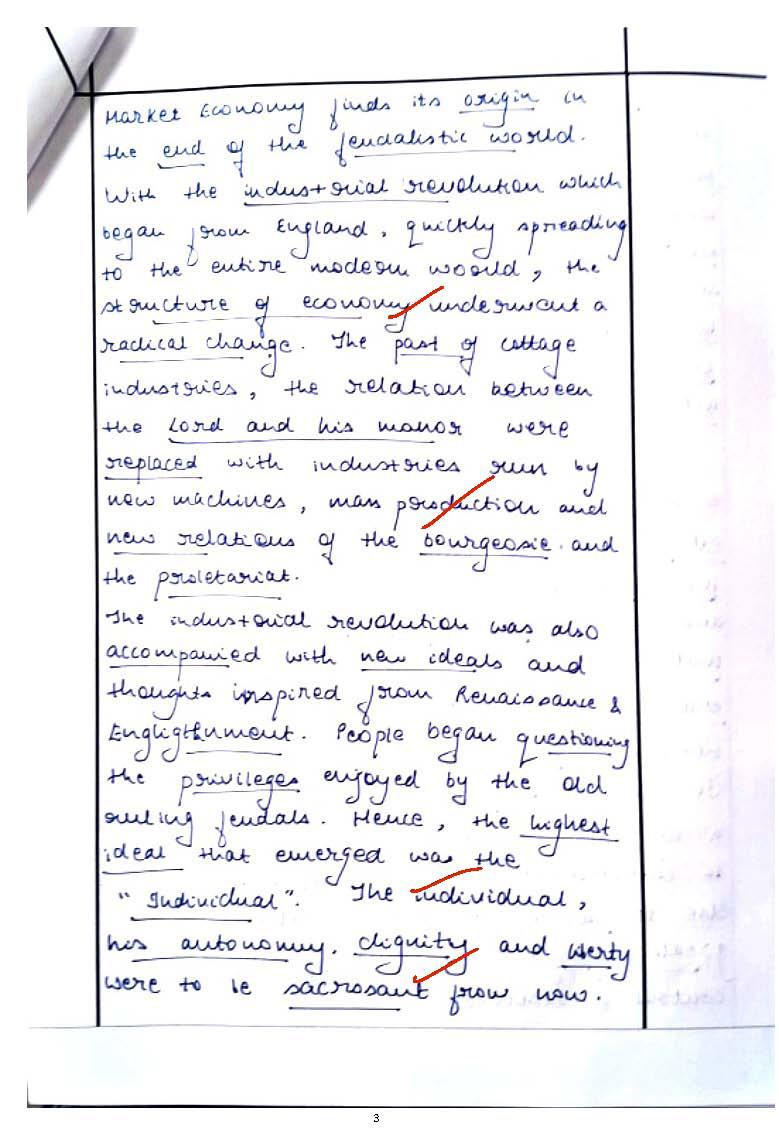 Market Economy finds its origin in
the end of the feudalistic world.
With the industrial revolution which
began from England, quickly spreading
to the entire modern woorld, the
structure of economy underwent a
radical change. The past of cottage
industries, the relation between
the Lord and his manor were
replaced with industries run by
new machines, mass production and
new relations of the bourgeosie and
the proletariat.
The industrial revolution was also
accompanied with new ideals and
thoughts inspired from Renaissance &
Engligthnment. People began questioning
the privileges enjoyed by the old
ruling feudals. Hence, the highest
ideal that emerged was the
"Individual". The individual,
his autonomy, dignity and liberty
were to be sacrosant from now.
3